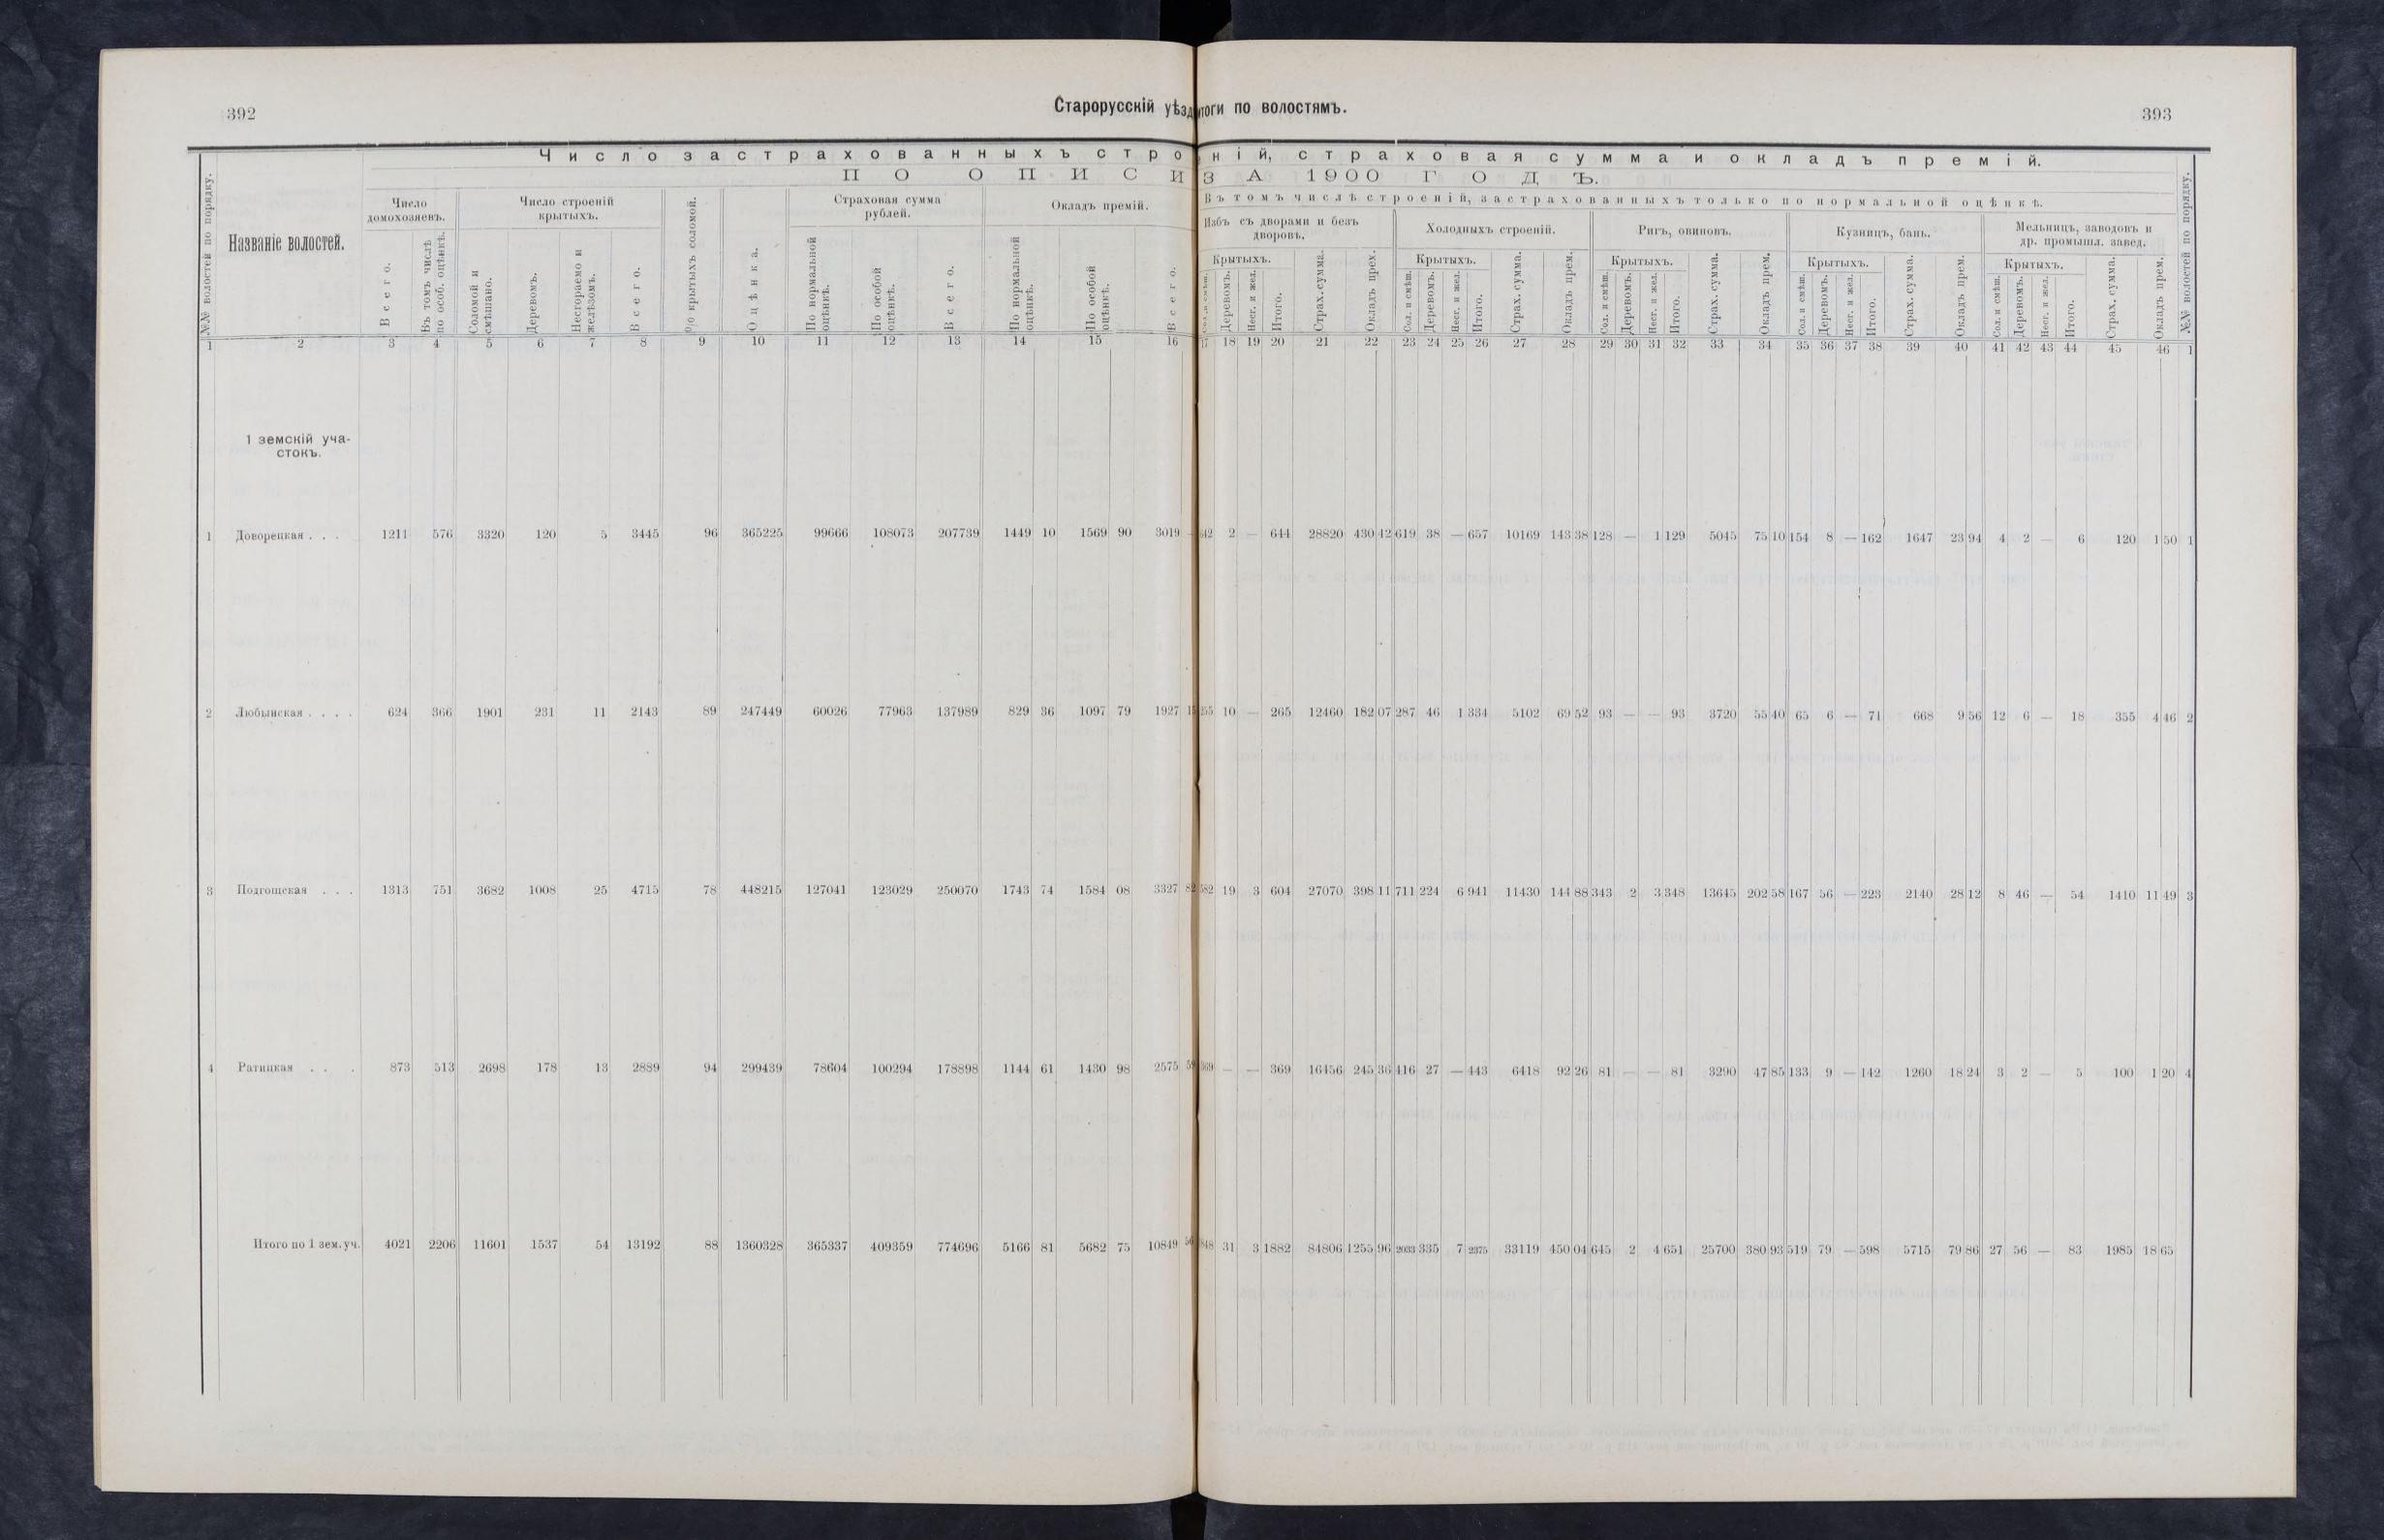 392
Старорусскій уѣзд
итоги по волостямъ.
393
Число застрахованныхъ стро
ній, страховая сумма и окладъ премій.
ПО ОПИСИ
ЗА 1900 ГОДЪ.
№№ волостей по порядку.
Названіе волостей.
Число домохозяевъ.
Всего.
Въ томъ числѣ по особ. оцѣнкѣ.
Число строеній крытыхъ.
Соломой и смѣшано.
Деревомъ.
Несгораемо и желѣзомъ.
Всего.
% крытыхъ соломой.
Оцѣнка.
Страховая сумма рублей.
По нормальной оцѣнкѣ.
По особой оцѣнкѣ.
Всего.
Окладъ премій.
По нормальной оцѣнкѣ.
По особой оцѣнкѣ.
Всего.
Въ томъ числѣ строеній, застрахованныхъ только по нормальной оцѣнкѣ.
Избъ съ дворами и безъ дворовъ.
Крытыхъ.
Деревомъ.
Несг. и жел.
Итого.
Страх. сумма.
Окладъ прем.
Холодныхъ строеній.
Крытыхъ.
Сол. и смѣш.
Деревомъ.
Несг. и жел.
Итого.
Страх. сумма.
Окладъ прем.
Ригъ, овиновъ.
Крытыхъ.
Сол. и смѣш.
Деревомъ.
Несг. и жел.
Итого.
Страх. сумма.
Окладъ прем.
Кузницъ, бань.
Крытыхъ.
Сол. и смѣш.
Деревомъ.
Несг. и жел.
Итого.
Страх. сумма.
Окладъ прем.
Мельницъ, заводовъ и др. промышл. завед.
Крытыхъ.
Сол. и смѣш.
Деревомъ.
Несг. и жел.
Итого.
Страх. сумма.
Окладъ прем.
№№ волостей по порядку.
1 2 3 4 5 6 7 8 9 10 11 12 13 14 15 16 17 18 19 20 21 22 23 24 25 26 27 28 29 30 31 32 33 34 35 36 37 38 39 40 41 42 43 44 45 46 1
1 земскій уча-
стокъ.
1 Доворецкая . . . 1211 576 3320 120 5 3445 96 365225 99666 108073 207739 1449 10 1569 90 3019 — 642 2 — 644 28820 430 42 619 38 — 657 10169 143 38 128 — 1 129 5045 75 10 154 8 — 162 1647 23 94 4 2 — 6 120 1 50 1
2 Любынская . . . . 624 366 1901 231 11 2143 89 247449 60026 77963 137989 829 36 1097 79 1927 15 255 10 — 265 12460 182 07 287 46 1 334 5102 69 52 93 — — 93 3720 55 40 65 6 — 71 668 9 56 12 6 — 18 355 4 46 2
3 Подгощская . . . 1313 751 3682 1008 25 4715 78 448215 127041 123029 250070 1743 74 1584 08 3327 82 582 19 3 604 27070 398 11 711 224 6 941 11430 144 88 343 2 3 348 13645 202 58 167 56 — 223 2140 28 12 8 46 — 54 1410 11 49 3
4 Ратицкая . . . 873 513 2698 178 13 2889 94 299439 78604 100294 178898 1144 61 1430 98 2575 59 369 — — 369 16456 245 36 416 27 — 443 6418 92 26 81 — — 81 3290 47 85 133 9 — 142 1260 18 24 3 2 — 5 100 1 20 4
Итого по 1 зем. уч. 4021 2206 11601 1537 54 13192 88 1360328 365337 409359 774696 5166 81 5682 75 10849 56 848 31 3 1882 84806 1255 96 2033 335 7 2375 33119 450 04 645 2 4 651 25700 380 93 519 79 — 598 5715 79 86 27 56 — 83 1985 18 65